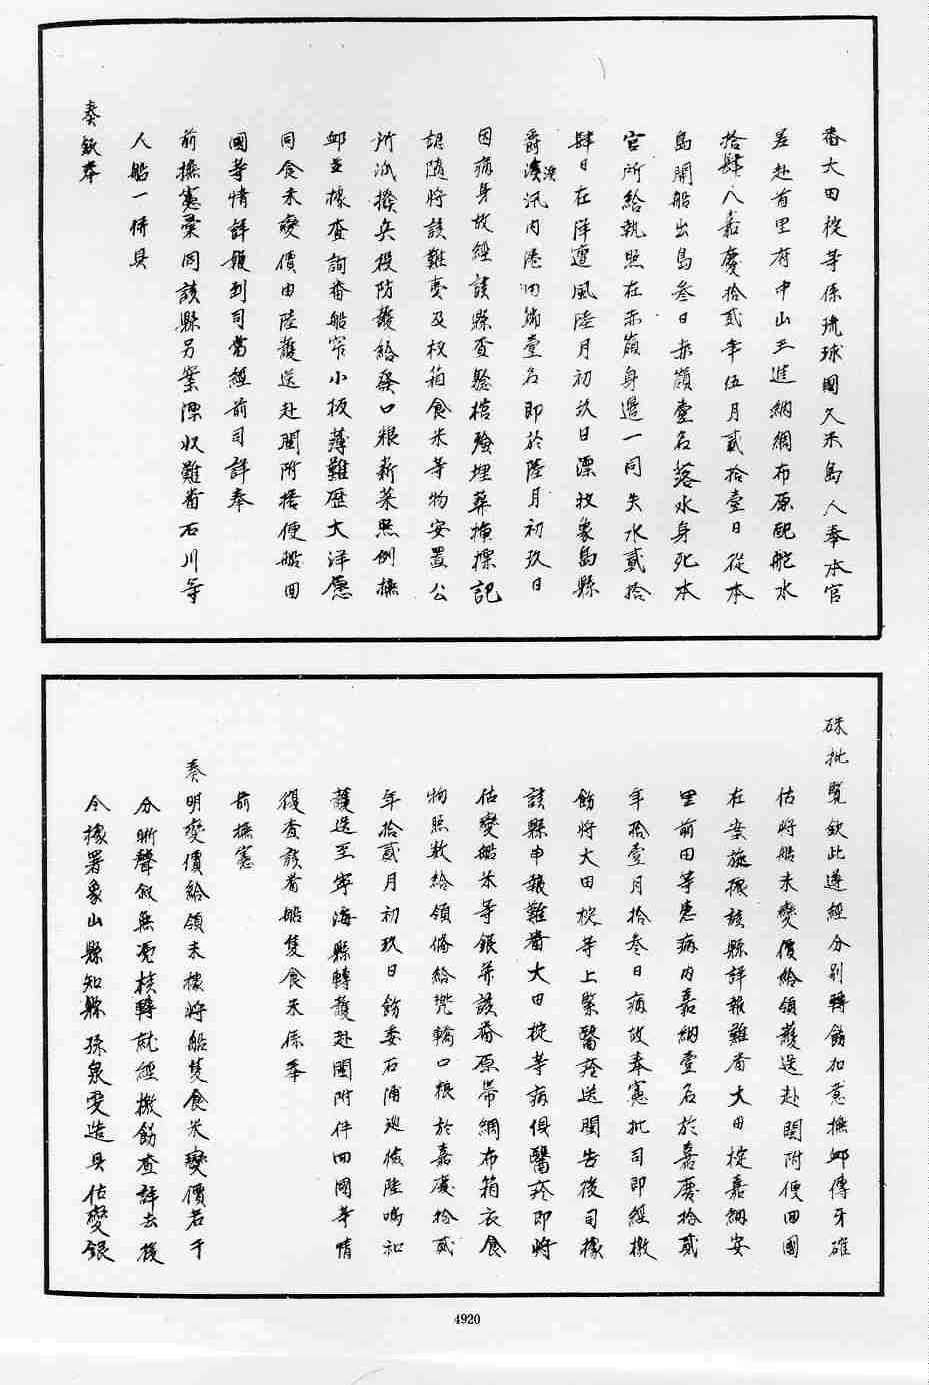 番大田掟等係琉球國久米島人奉本官
差赴首里府中山王進納綢布原配舵水
拾肆人嘉慶拾貳年伍月貳拾壹日從本
島開船出島叁日赤嶺壹名落水身死本
官所給執照在赤嶺身邊一同失水貳拾
肆日在洋遭風陸月初玖日漂收象島縣
爵溪汛內港 壹名即於陸月初玖日
因病身故經該縣查驗棺殮埋葬插標記
認隨將該難夷及杈箱食米等物安置公
所派撥兵役防護給發口粮薪菜照例撫
卹並據查詢番船窄小板薄難歷大洋應
同食米變價由陸護送赴閩附搭便船回
國等情詳報到司當經前司詳奉
前撫憲彙同該縣另案漂收難番石川等
人船一併具
奏欽奉
硃批覽欽此遵經分别轉飭加意撫卹傳牙確
估將船米變價給領護送赴閩附便回國
在案旋據該縣詳報難番大田掟嘉納安
里前田等患病內嘉納壹名於嘉慶拾貳
年拾壹月拾叁日病故奉憲批司即經檄
飭將大田掟等上緊醫痊送閩告後司據
該縣申報難番大田掟等病俱醫痊即將
估變船米等銀并該番原帶綢布箱衣食
物照數給領俻給兠轎口粮於嘉慶拾貳
年拾貳月初玖日飭委石浦巡檢陸鳴和
護送至寧海縣轉護赴閩附伴回國等情
復查該番船隻食米係奉
前撫憲
奏明變價給領未據將船隻食米變價若干
分晰聲敘無憑核轉就經檄飭查詳去後
今據署象山縣知縣孫泉雯造具估變銀
4920